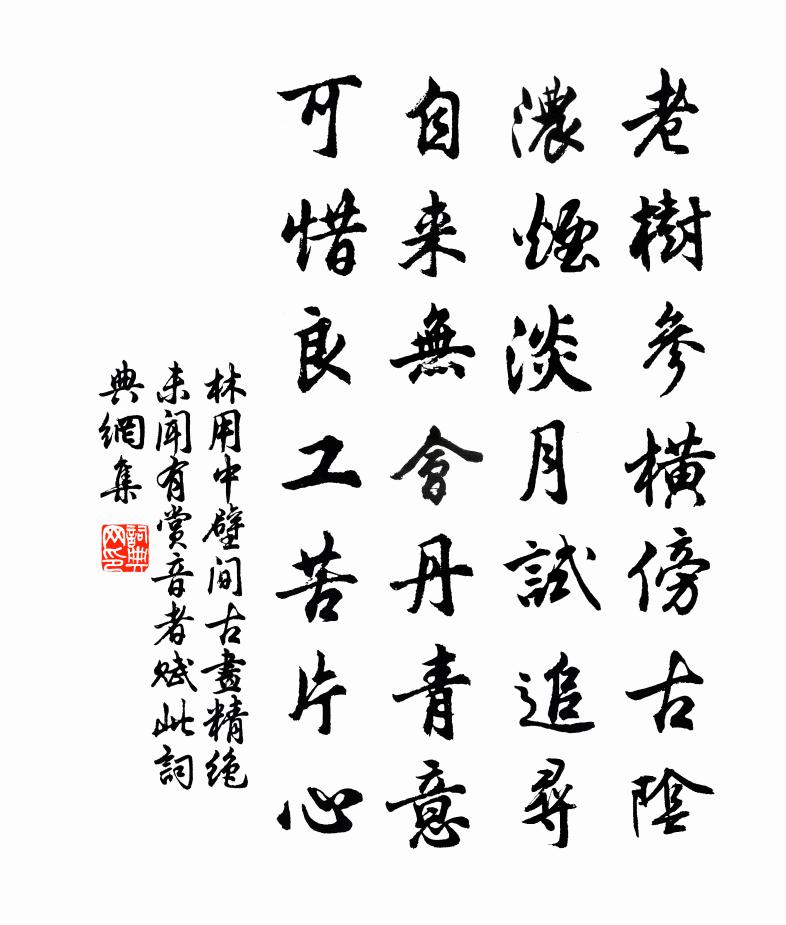 老樹參橫傍古陰
濃煙淡月試追尋
自来無會丹青意
可惜良工苦片心
林用中壁间古畫精绝
未聞有赏音者赋此詞
典網集
詞典
网印